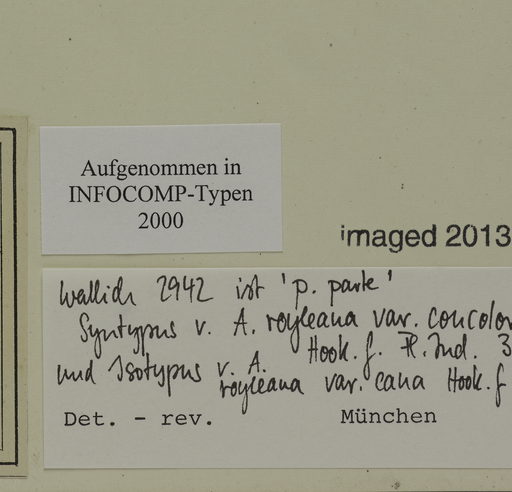 Aufgenommen in
INFOCOMP-Typen
2000
imaged 2013
Wallich 2942 ist 'p. parte'
Syntypus v. A. royleana var. concolor
Hook. f. Fl. Ind. 3
und Isotypus v. A.
royleana var. cana Hook. f
Det. - rev. München